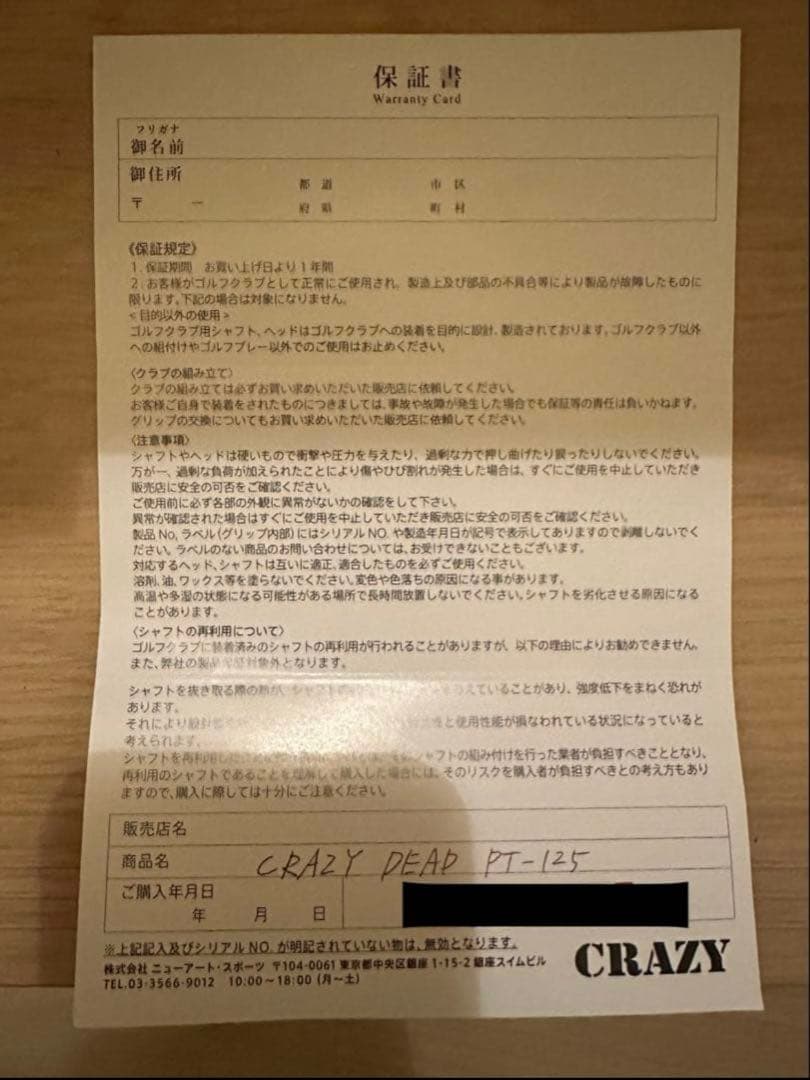 保証書
Warranty Card
フリガナ
御名前
御住所
都 道 市 区
〒 ー
府 県 町 村
《保証規定》
1. 保証期間 お買い上げ日より1年間
2. お客様がゴルフクラブとして正常にご使用され、製造上及び部品の不具合等により製品が故障したものに
限ります。下記の場合は対象になりません。
<目的以外の使用>
ゴルフクラブ用シャフト、ヘッドはゴルフクラブへの装着を目的に設計、製造されております。ゴルフクラブ以外
への組付けやゴルフプレー以外でのご使用はお止めください。
〈クラブの組み立て〉
クラブの組み立ては必ずお買い求めいただいた販売店に依頼してください。
お客様ご自身で装着をされたものにつきましては、事故や故障が発生した場合でも保証等の責任は負いかねます。
グリップの交換についてもお買い求めいただいた販売店に依頼してください。
〈注意事項〉
シャフトやヘッドは硬いもので衝撃や圧力を与えたり、過剰な力で押し曲げたり戻ったりしないでください。
万が一、過剰な負荷が加えられたことにより傷やひび割れが発生した場合は、すぐにご使用を中止していただき
販売店に安全の可否をご確認ください。
ご使用前に必ず各部の外観に異常がないかの確認をして下さい。
異常が確認された場合はすぐにご使用を中止していただき販売店に安全の可否をご確認ください。
製品No, ラベル(グリップ内部)にはシリアルNO. や製造年月日が記号で表示してありますので剥離しないでく
ださい。ラベルのない商品のお問い合わせについては、お受けできないこともございます。
対応するヘッド、シャフトは互いに適正、適合したものを必ずご使用ください。
溶剤、油、ワックス等を塗らないでください。変色や色落ちの原因になる事があります。
高温や多湿の状態になる可能性がある場所で長時間放置しないでください。シャフトを劣化させる原因になる
ことがあります。
〈シャフトの再利用について〉
ゴルフクラブに装着済みのシャフトの再利用が行われることがありますが、以下の理由によりお勧めできません。
また、弊社の製品保証対象外となります。
シャフトを抜き取る際の熱が、シャフトの えていることがあり、強度低下をまねく恐れが
あります。
それにより設計 と使用性能が損なわれている状況になっていると
考えられます。
シャフトを再利用した シャフトの組み付けを行った業者が負担すべきこととなり、
再利用のシャフトであることを理解して購入した場合には、そのリスクを購入者が負担すべきとの考え方もあり
ますので、購入に際しては十分にご注意ください。
販売店名
商品名 CRAZY DEAD PT-125
ご購入年月日
年 月 日
※上記記入及びシリアルNO. が明記されていない物は、無効となります。
株式会社 ニューアート・スポーツ 〒104-0061 東京都中央区銀座1-15-2 銀座スイムビル
TEL.03-3566-9012 10:00〜18:00 (月〜土)
CRAZY